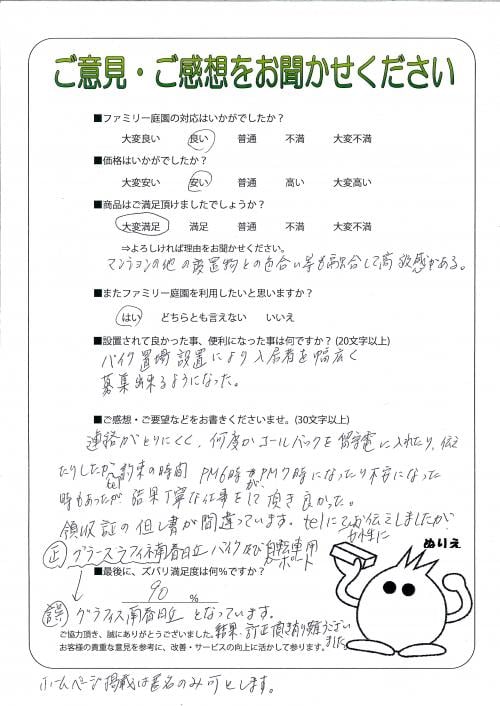 ご意見・ご感想をお聞かせください
■ファミリー庭園の対応はいかがでしたか？
大変良い　良い　普通　不満　大変不満
■価格はいかがでしたか？
大変安い　安い　普通　高い　大変高い
■商品はご満足頂けましたでしょうか？
大変満足　満足　普通　不満　大変不満
⇒よろしければ理由をお聞かせください。
マンションの他の設置物との色合い等も融合して高級感がある。
■またファミリー庭園を利用したいと思いますか？
はい　どちらとも言えない　いいえ
■設置されて良かった事、便利になった事は何ですか？（20文字以上）
バイク置場設置により入居者を幅広く
募集出来るようになった。
■ご感想・ご要望などをお書きくださいませ。（30文字以上）
連絡がとりにくく、何度かコールバックを留守電に入れたり、伝え
たりしたが tel約束の時間 PM6時がPM7時になったり不安になった
時もあったが 結果丁寧な仕事をして頂き良かった。
領収証の但し書が間違っています。telにてお伝えしましたが
正 グラースラフィネ南春日丘 バイク及び自転車用
カーポート
ぬりえ
■最後に、ズバリ満足度は何％ですか？
90 ％
誤 グラフィス南春日丘 となっています。
結果、訂正頂き有り難うござい
ました。
ご協力頂き、誠にありがとうございました。
お客様の貴重な意見を参考に、改善・サービスの向上に活かして参ります。
ホームページ掲載は匿名のみ可とします。